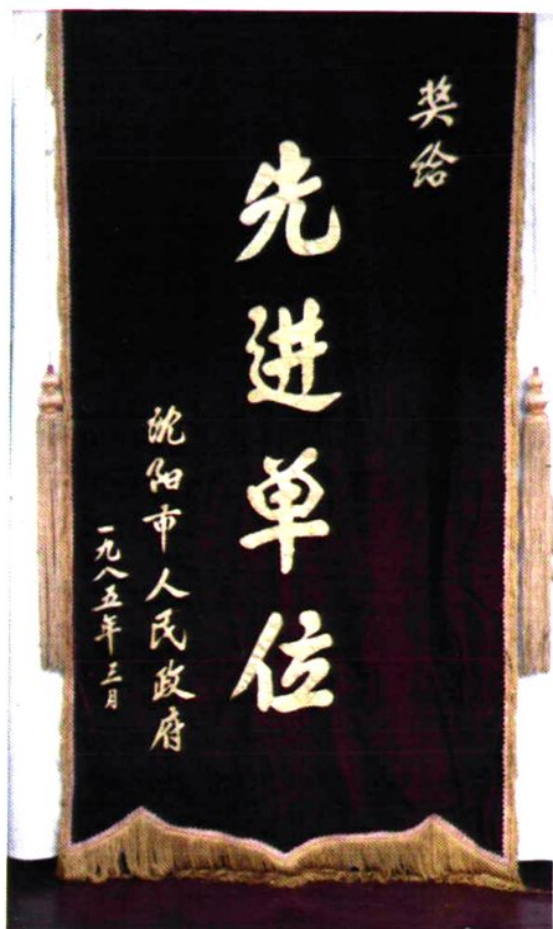 奖给
先进单位
沈阳市人民政府
一九八五年三月